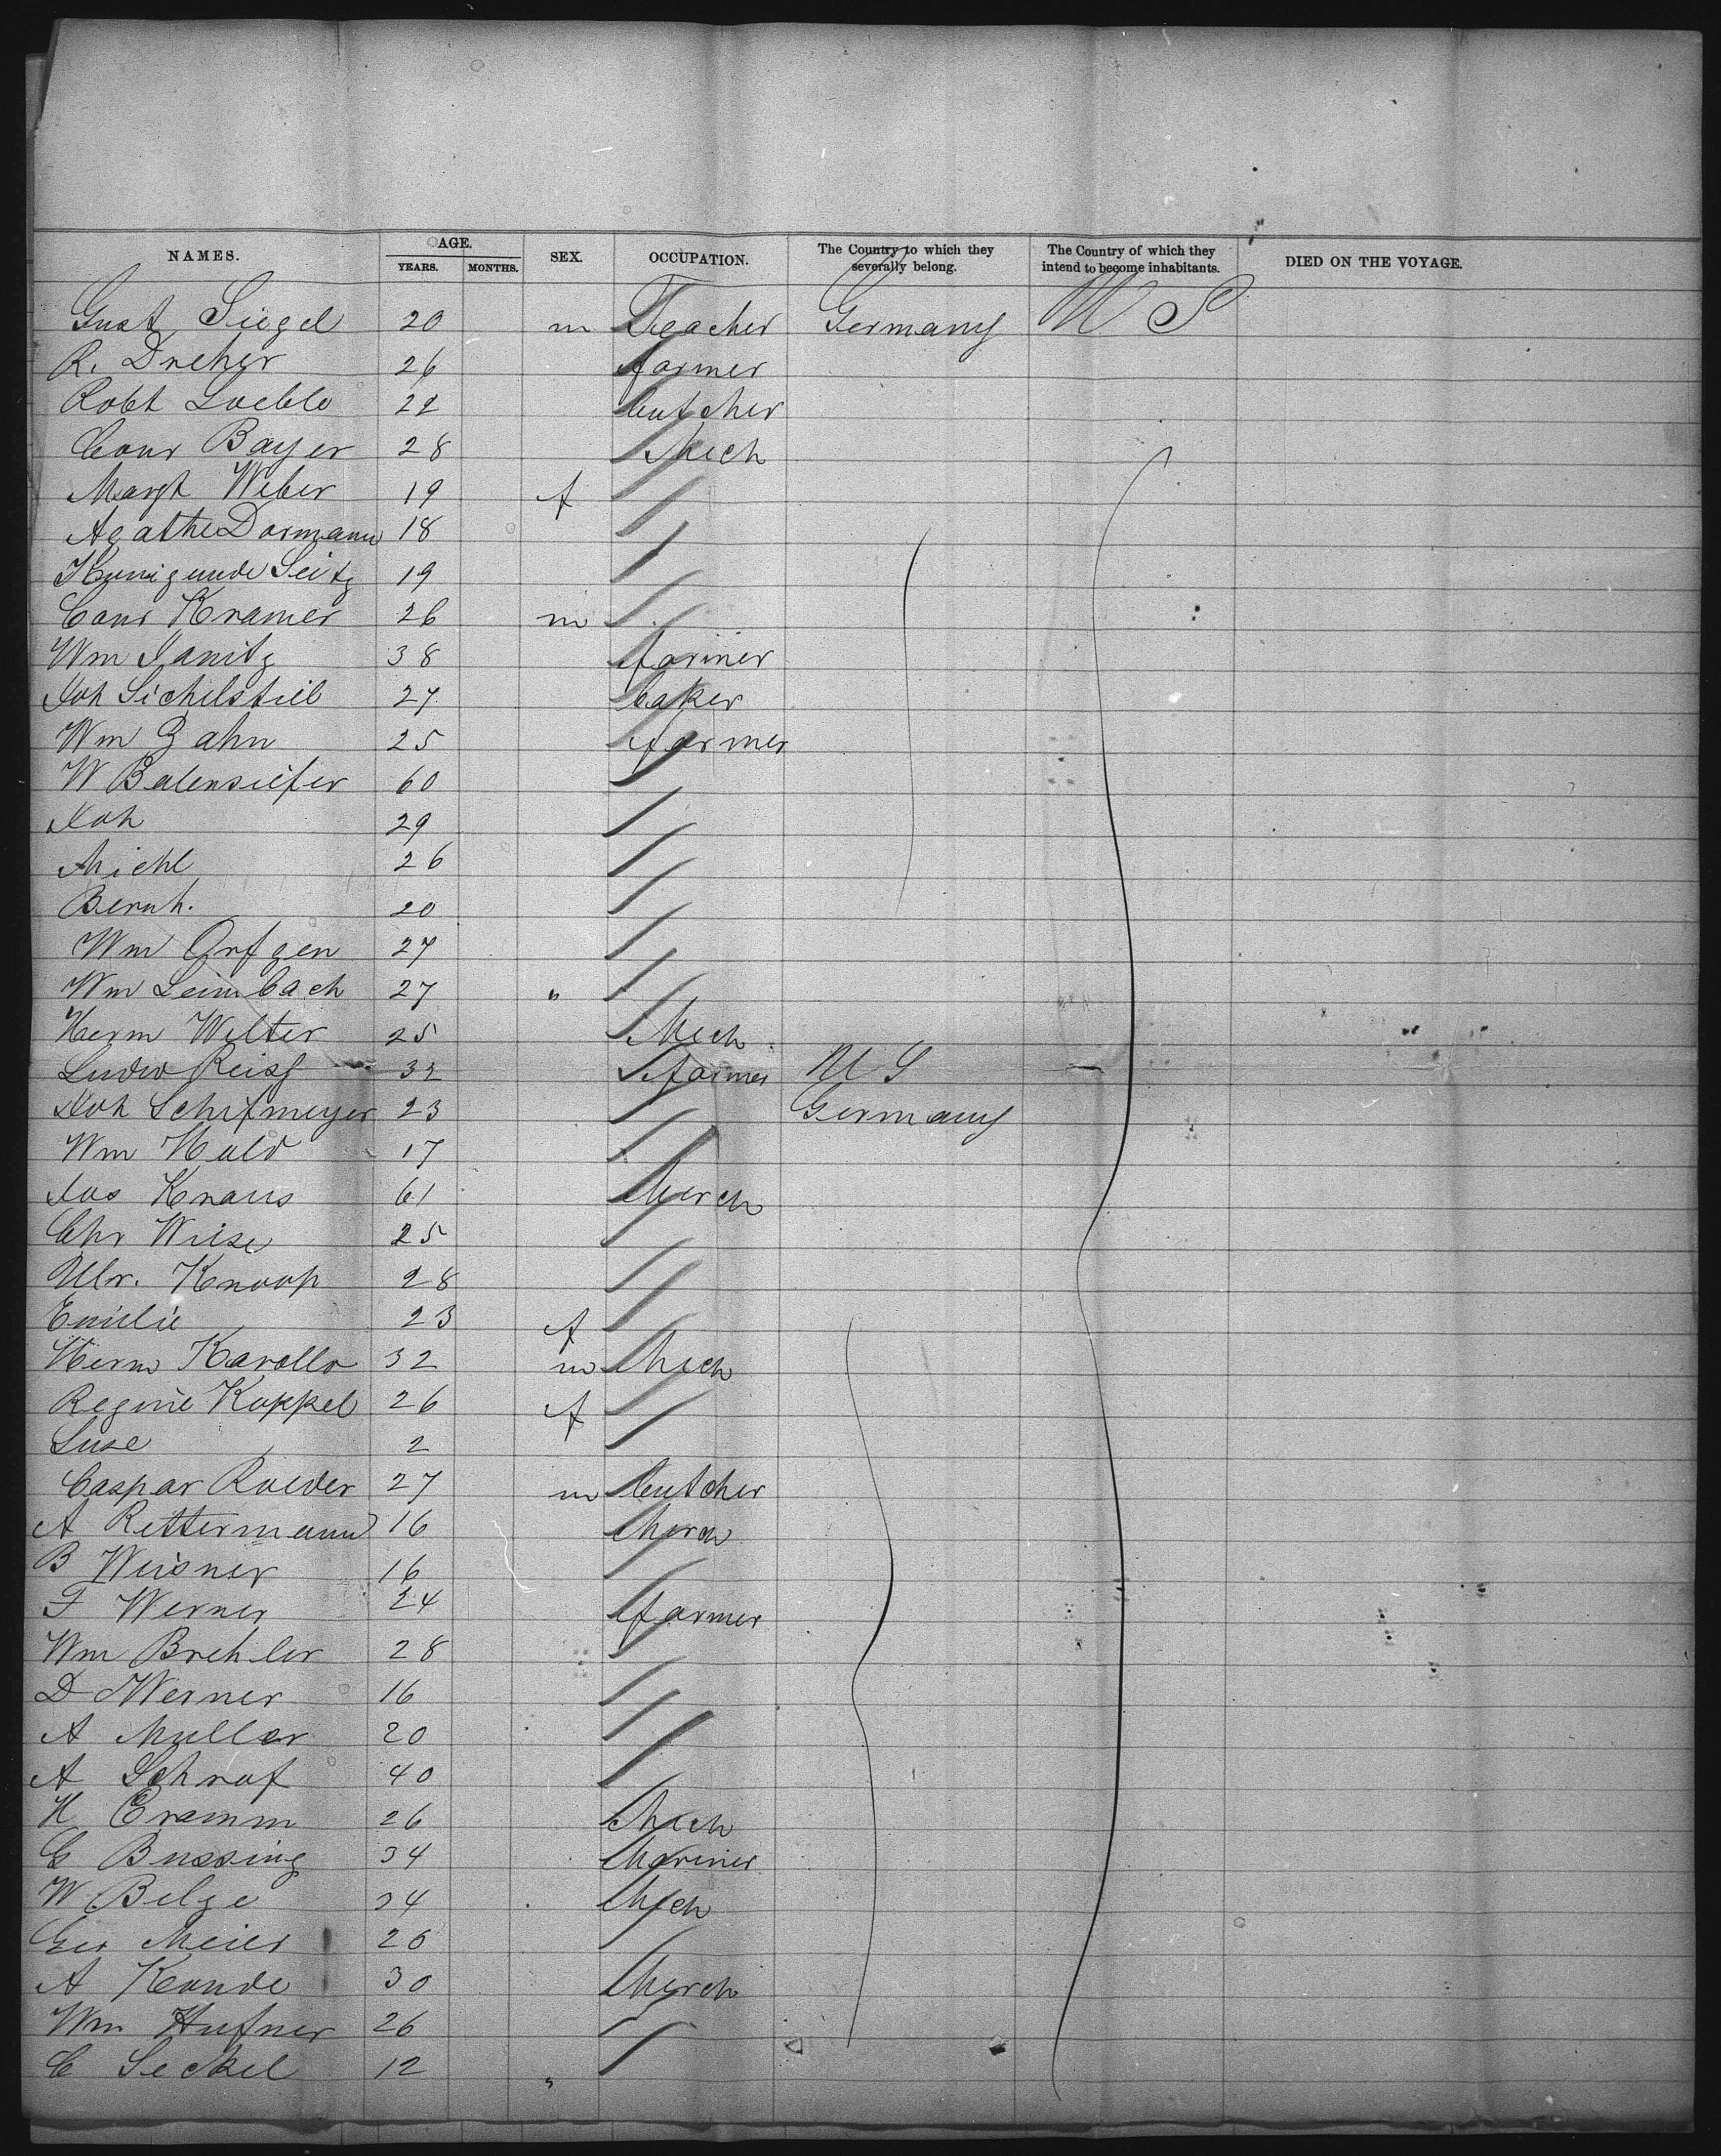 NAMES. AGE. YEARS. MONTHS. SEX. OCCUPATION. The Country to which they severally belong. The Country of which they intend to become inhabitants. DIED ON THE VOYAGE.
Gust Siegel 20 m Teacher Germany U S
R. Dreher 26 farmer
Robt Loeble 22 butcher
Conr Bayer 28 Mech
Margt Weber 19 f
Agathe Dormann 18
Kunigunde Seitz 19
Conr Kramer 26 m
Wm Janitz 38 farmer
Joh Sichelstiel 27 baker
Wm Zahn 25 farmer
W Balensiefer 60
Joh 29
Michl 26
Bernh. 20
Wm Orfgen 27
Wm Leimbach 27 "
Herm Welter 25 Mech.
Ludw Reiss 32 farmer U S
Joh Schifmeyer 23 Germany
Wm Hald 17
Jos Knaus 61 Merch
Chr Wiese 25
Ulr. Knoop 28
Emilie 23 f
Herm Karollo 32 m Mech
Regine Koppel 26 f
Luse 2
Caspar Roeder 27 m butcher
A Rettermann 16 Merch
B Weisner 16
F Werner 24 farmer
Wm Brehler 28
D Werner 16
A Muller 20
A Schraf 40
H Cramm 26 Mech
G Bussing 34 Mariner
W Belge 34 Mech
Geo Meier 26
A Konde 30 Merch
Wm Hufner 26
C Seckel 12 "